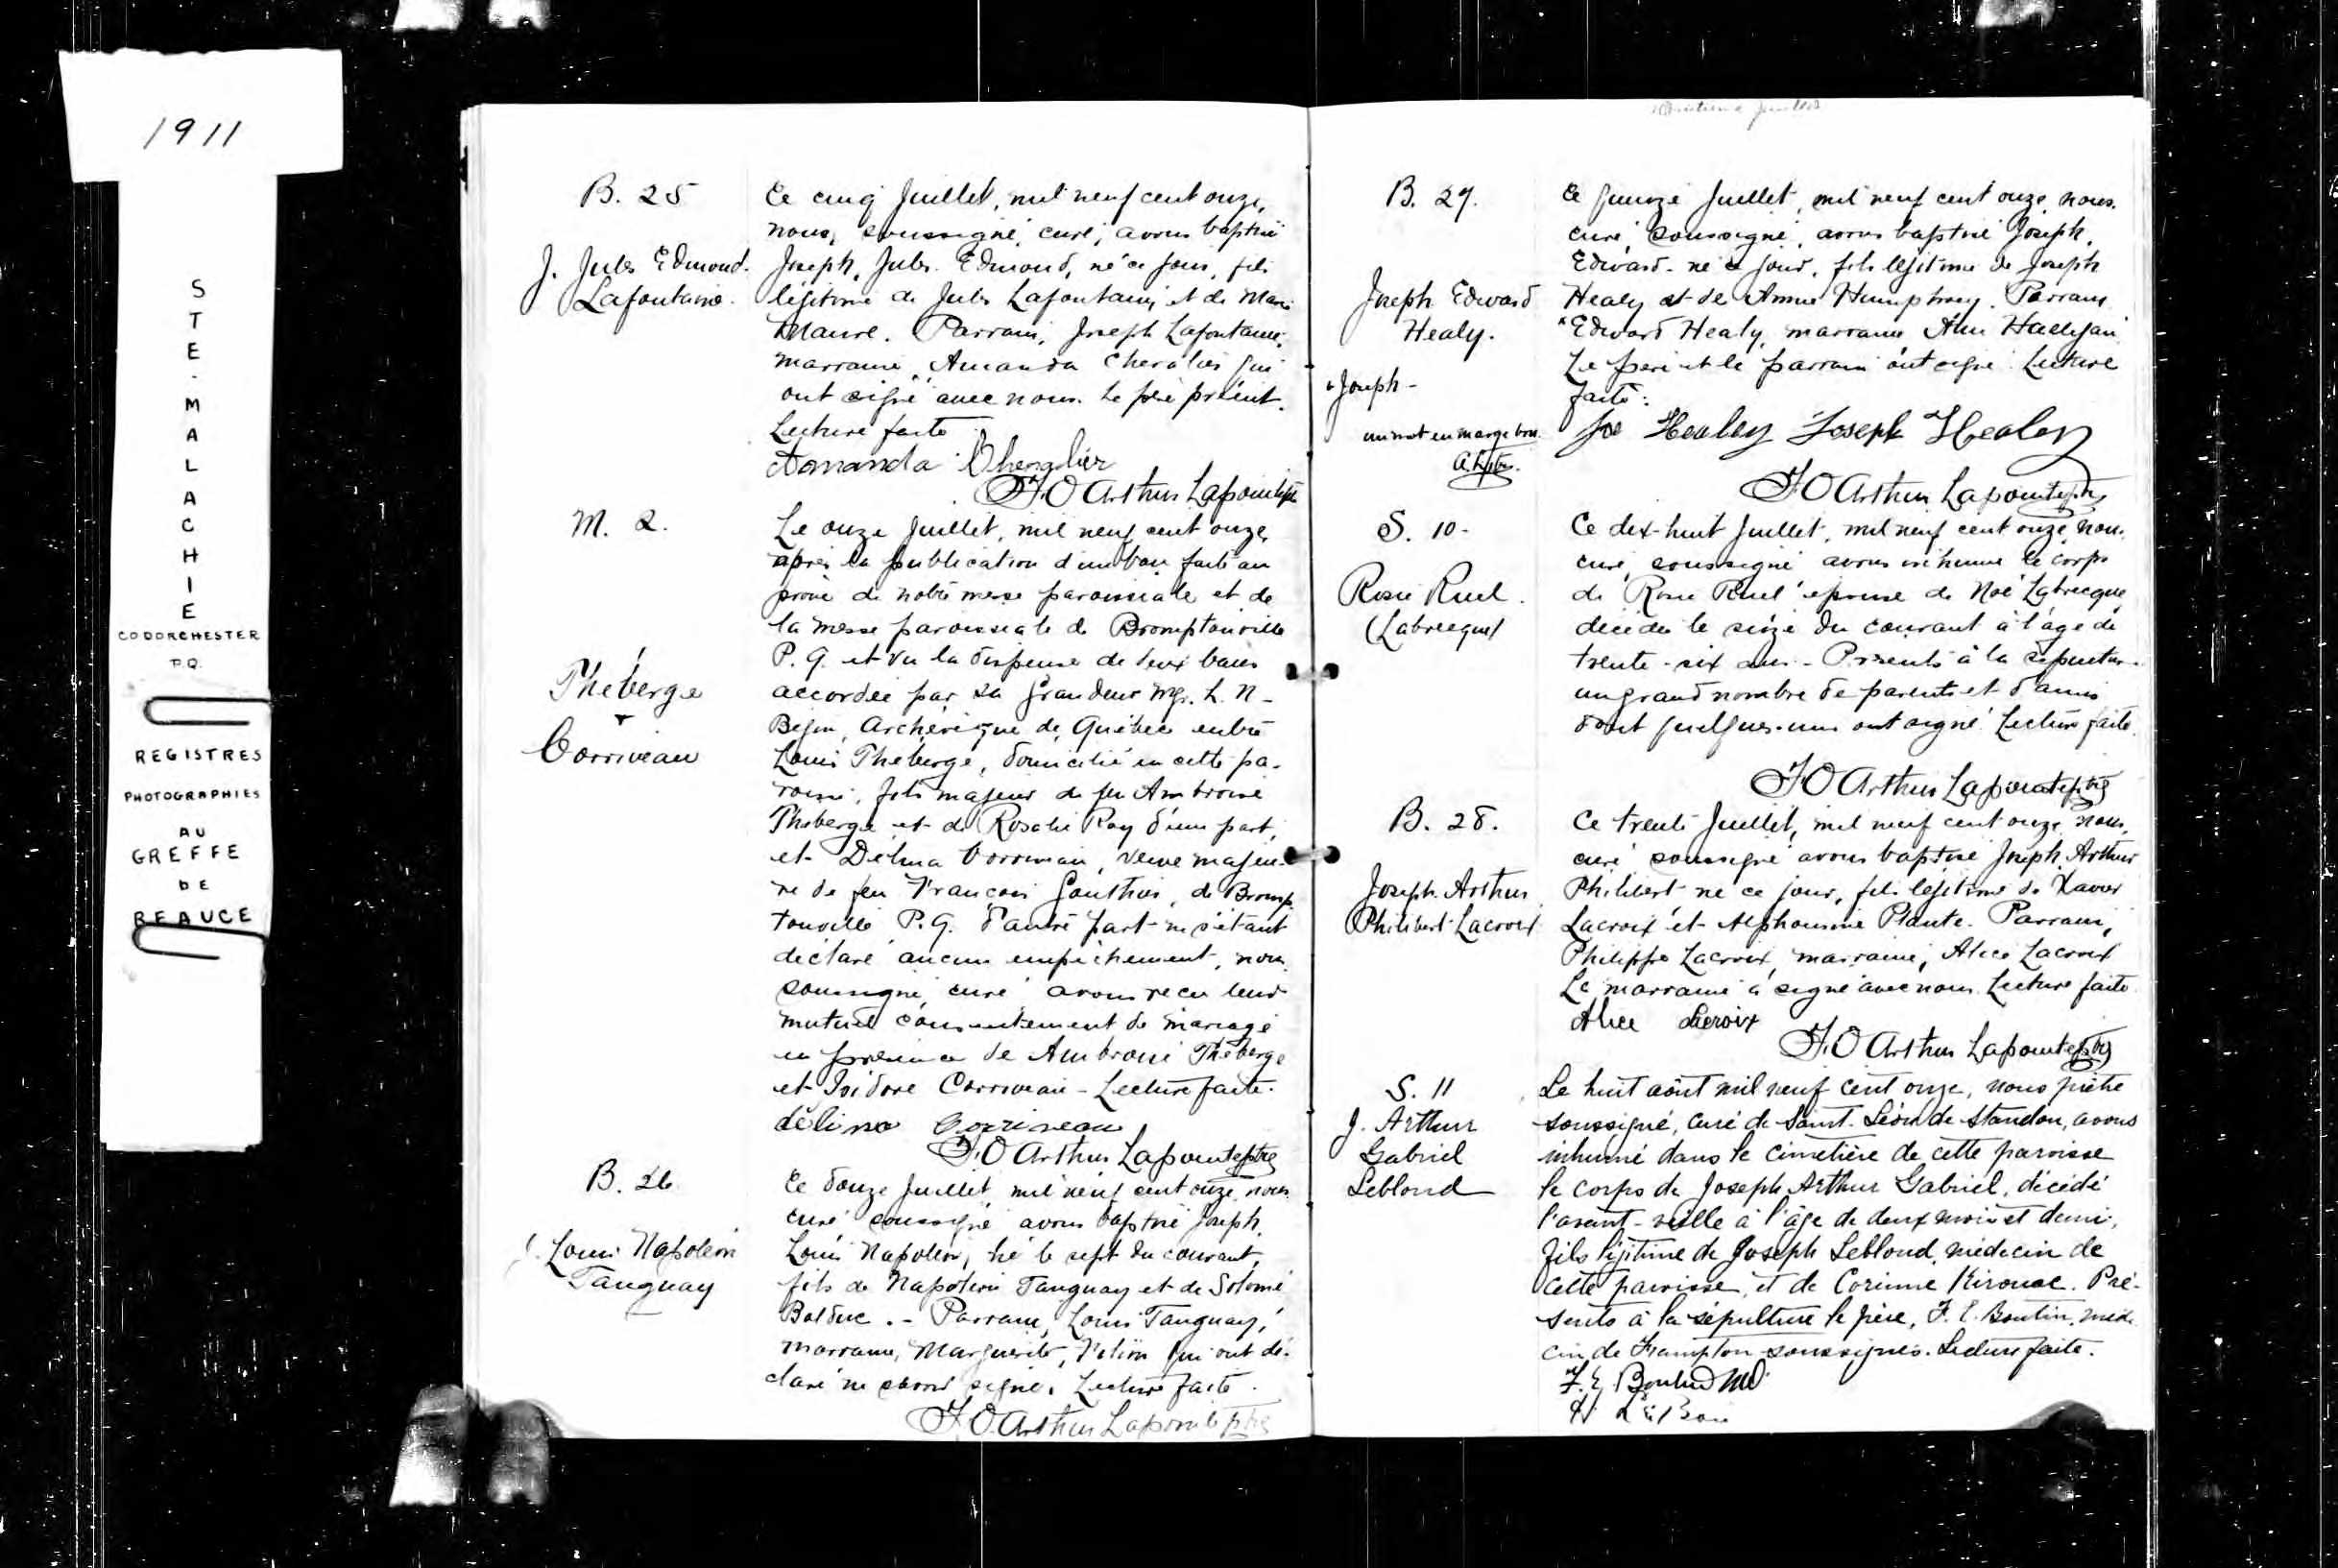 1911
STE-MALACHIE
CO DORCHESTER
P.Q.
REGISTRES
PHOTOGRAPHIES
AU
GREFFE
DE
BEAUCE
B. 25
J. Jules Edmond
Lafontaine.
Ce cinq Juillet, mil neuf cent onze,
nous, soussigné, curé, avons baptisé
Joseph, Jules Edmond, né ce jour, fils
légitime de Jules Lafontaine et de Marie
Parrain, Joseph Lafontaine,
marraine, Amanda Chevalier qui
ont signé avec nous. Le père présent.
Lecture faite.
Amanda Chevalier
F.O Arthur Lapointe ptre
M. 2.
Théberge
&
Corriveau
Le onze Juillet, mil neuf cent onze,
après la publication d'un ban faite au
prône de notre messe paroissiale et de
la messe paroissiale de Bromptonville
P. Q. et vu la dispense de deux bans
accordée par sa Grandeur Mgr. L. N.
Bégin, Archevêque de Québec entre
Louis Théberge, domicilié en cette pa-
roisse, fils majeur de feu Ambroise
Théberge et de Rosalie Roy d'une part,
et Délina Corriveau, veuve majeu-
re de feu François Gauthier, de Bromp-
tonville P. Q. d'autre part ne s'étant
déclaré aucun empêchement, nous
soussigné, curé avons reçu leur
mutuel consentement de mariage
en présence de Ambroise Théberge
et Isidore Corriveau - Lecture faite.
délina Corriveau
F.O Arthur Lapointe ptre
B. 26
J. Louis Napoléon
Tanguay
Ce douze Juillet mil neuf cent onze nous
curé soussigné avons baptisé Joseph,
Louis Napoléon, né le sept du courant,
fils de Napoléon Tanguay et de Solomé
Bolduc. - Parrain, Louis Tanguay,
marraine, Marguerite, qui ont dé-
claré ne savoir signer. Lecture faite.
F.O. Arthur Lapointe ptre
Juillet
B. 27.
Joseph Edward
Healy.
x Joseph -
un mot en marge bon.
Ce quinze Juillet, mil neuf cent onze, nous
curé, soussigné, avons baptisé Joseph,
Edward né ce jour, fils légitime de Joseph
Healy et de Annie Humphrey. Parrain
x Edward Healy, marraine Ann
Le père et le parrain ont signé. Lecture
faite.
Joe Healey Joseph Healey
F.O Arthur Lapointe ptre
S. 10 -
Rosie Ruel.
(Labrecque)
Ce dix-huit Juillet, mil neuf cent onze, nous
curé, soussigné avons inhumé le corps
de Rosie Ruel épouse de Noé Labrecque
décédée le seize du courant à l'âge de
trente-six ans - Présents à la sépulture
un grand nombre de parents et d'amis
dont quelques-uns ont signé. Lecture faite.
F.O Arthur Lapointe ptre
B. 28.
Joseph Arthur
Philibert Lacroix
Ce trente Juillet, mil neuf cent onze nous,
curé soussigné avons baptisé Joseph Arthur
Philibert né ce jour, fils légitime de Xavier
Lacroix et Alphonsine Plante. Parrain,
Philippe Lacroix, marraine, Alice Lacroix
La marraine a signé avec nous. Lecture faite
Alice Lacroix
F.O Arthur Lapointe ptre
S. 11
J. Arthur
Gabriel
Leblond
Le huit août mil neuf cent onze, nous prêtre
soussigné, curé de Saint-Léon de Standon, avons
inhumé dans le cimetière de cette paroisse
le corps de Joseph Arthur Gabriel, décédé
l'avant-veille à l'âge de deux mois et demi,
fils légitime de Joseph Leblond, médecin de
cette paroisse, et de Corinne Kirouac. Pré-
sents à la sépulture le père, F. E. Boutin, méde-
cin de Frampton soussignés. Lecture faite.
F. E. Boutin MD